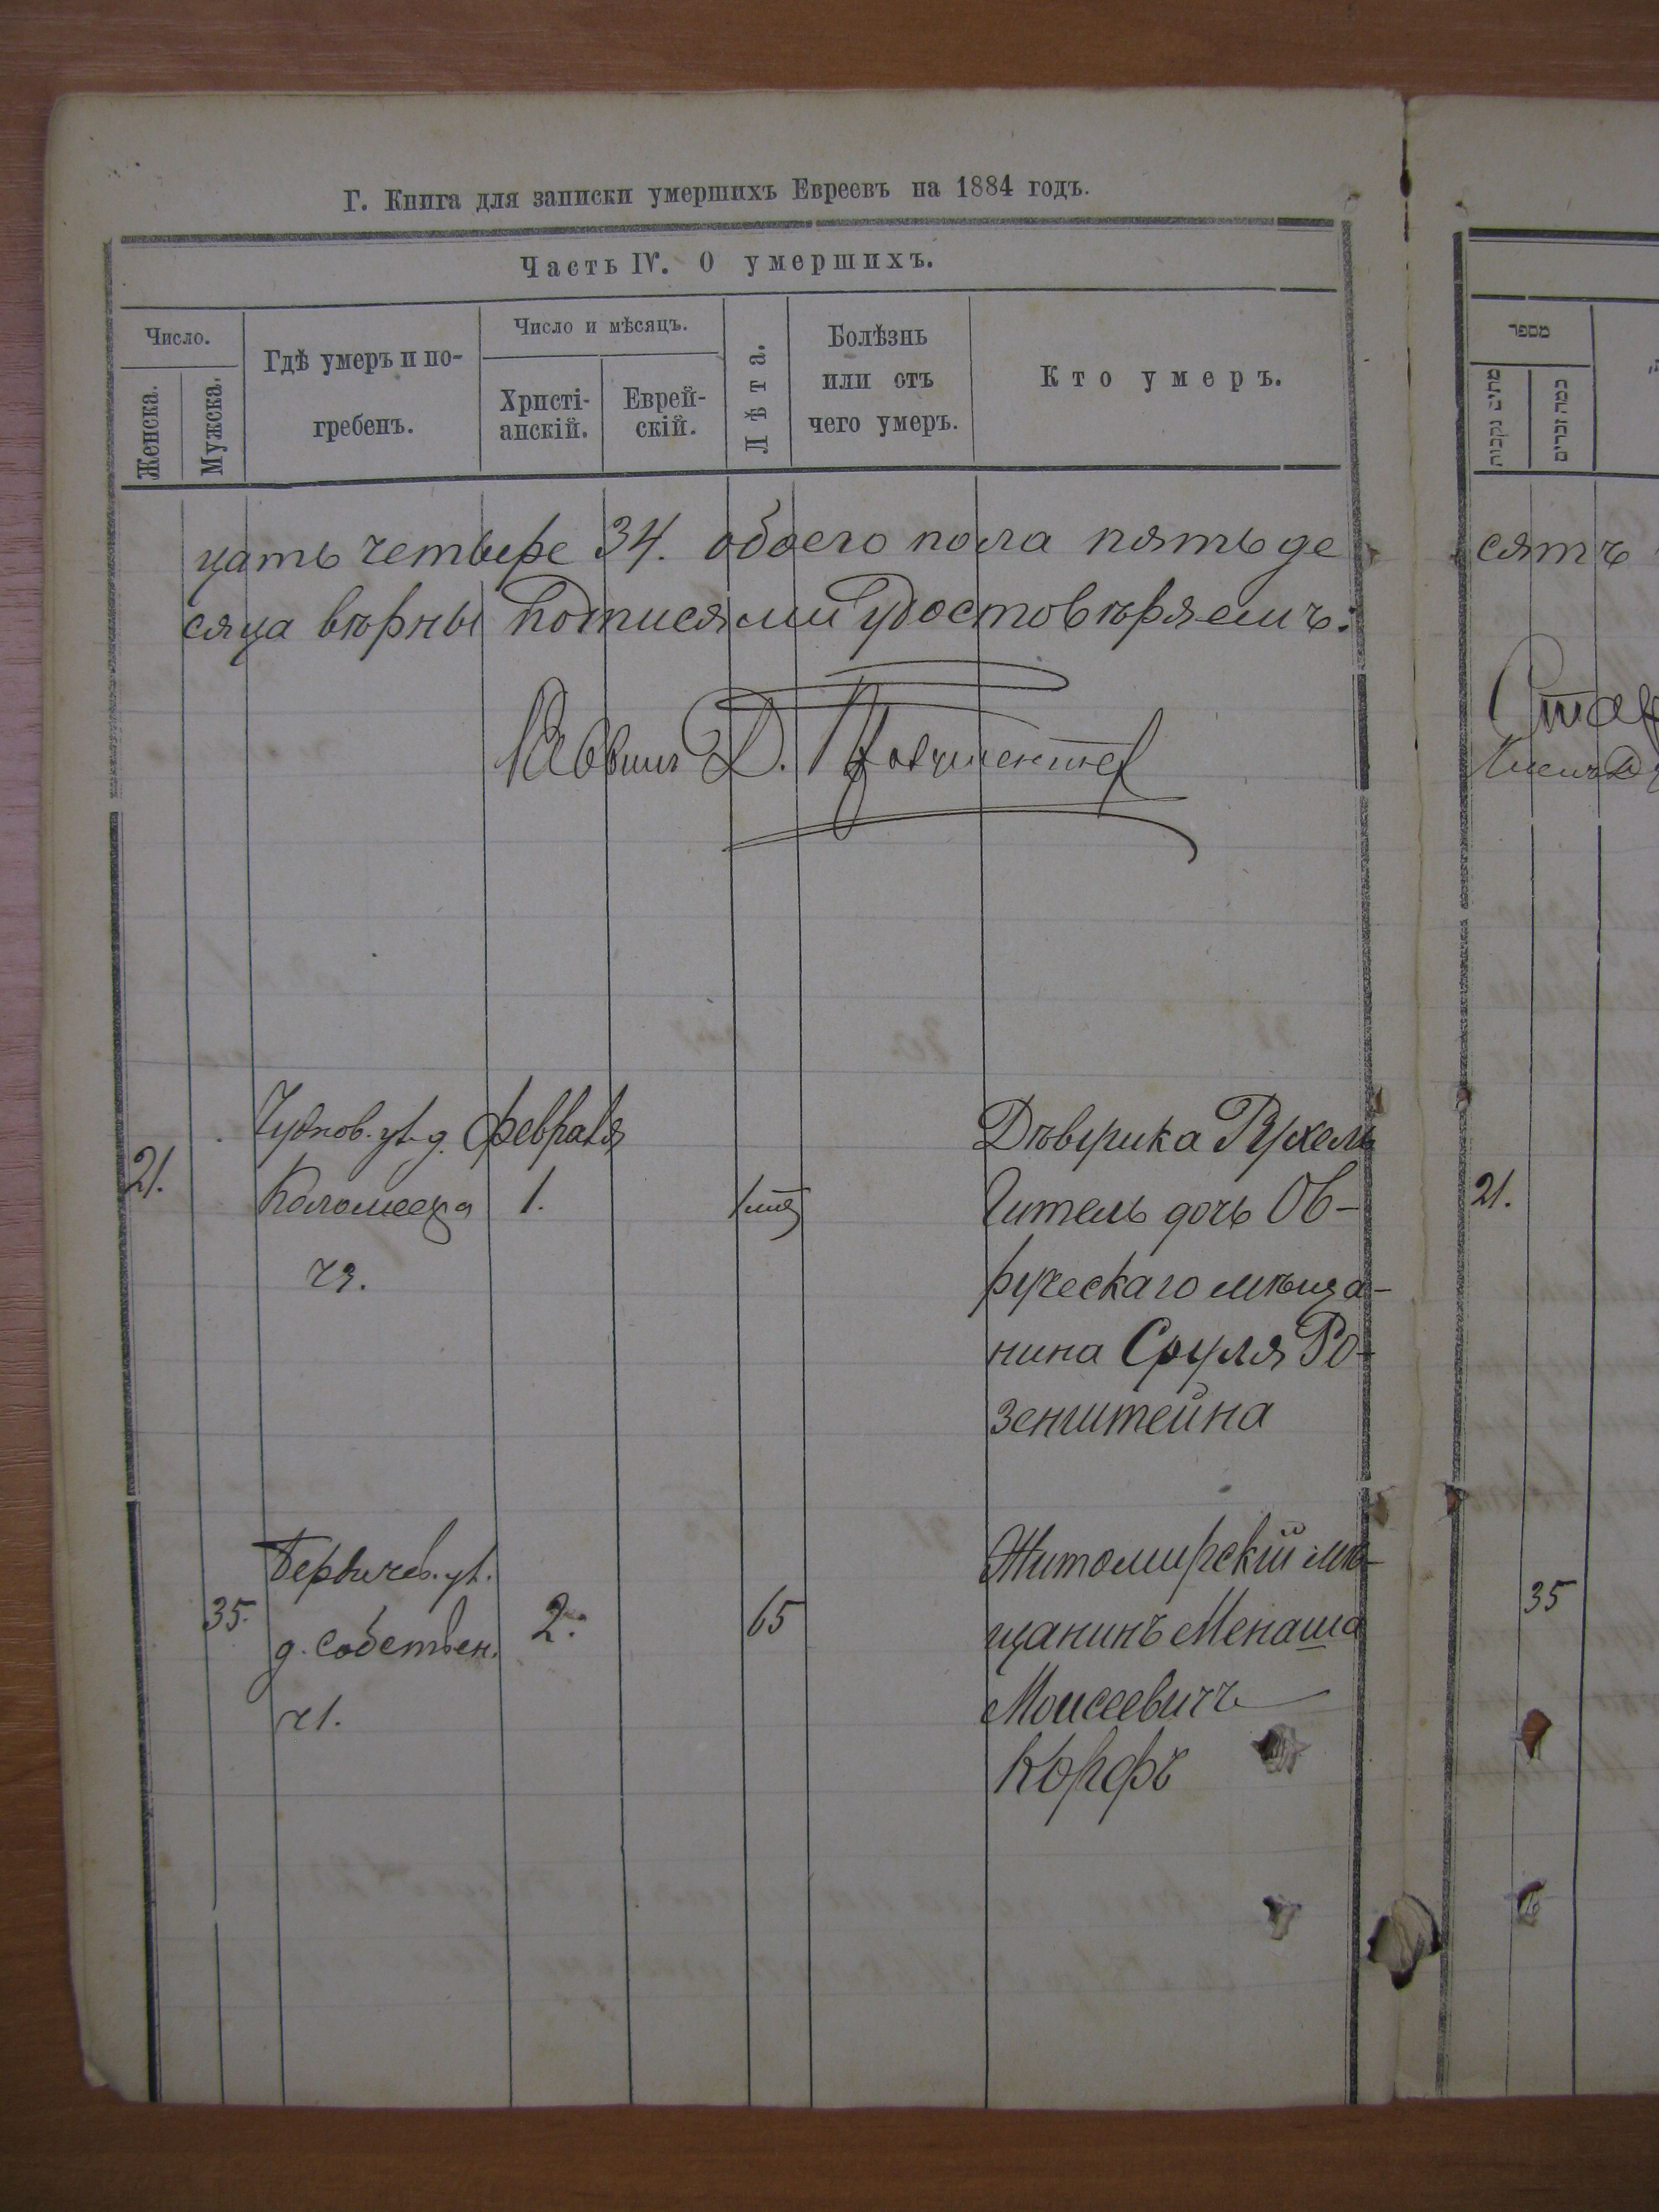 Г. Книга для записки умершихъ Евреевъ на 1884 годъ.
Часть IV. О умершихъ.
Число.
Женска.
Мужска.
Гдѣ умеръ и по-
гребенъ.
Число и мѣсяцъ.
Христі-
анскій.
Еврей-
скій.
Лѣта.
Болѣзнь
или отъ
чего умеръ.
Кто умеръ.
цать четыре 34. обоего пола пятьде
сяца вѣрны подписями удостовѣряемъ:
Раввинъ Д.
21.
Чуднов. ул. д.
Коломейца
ч 3.
февраля
1.
Дѣвушка Рухель
Гитель дочь Ов-
ручскаго мѣща-
нина Сруля Ро-
зенштейна
35.
Бердичев. ул.
д. собствен.
ч 1.
2.
65
Житомирскій мѣ-
щанинъ Менаша
Моисеевичъ
Корфъ
מספר
סятъ
21.
35